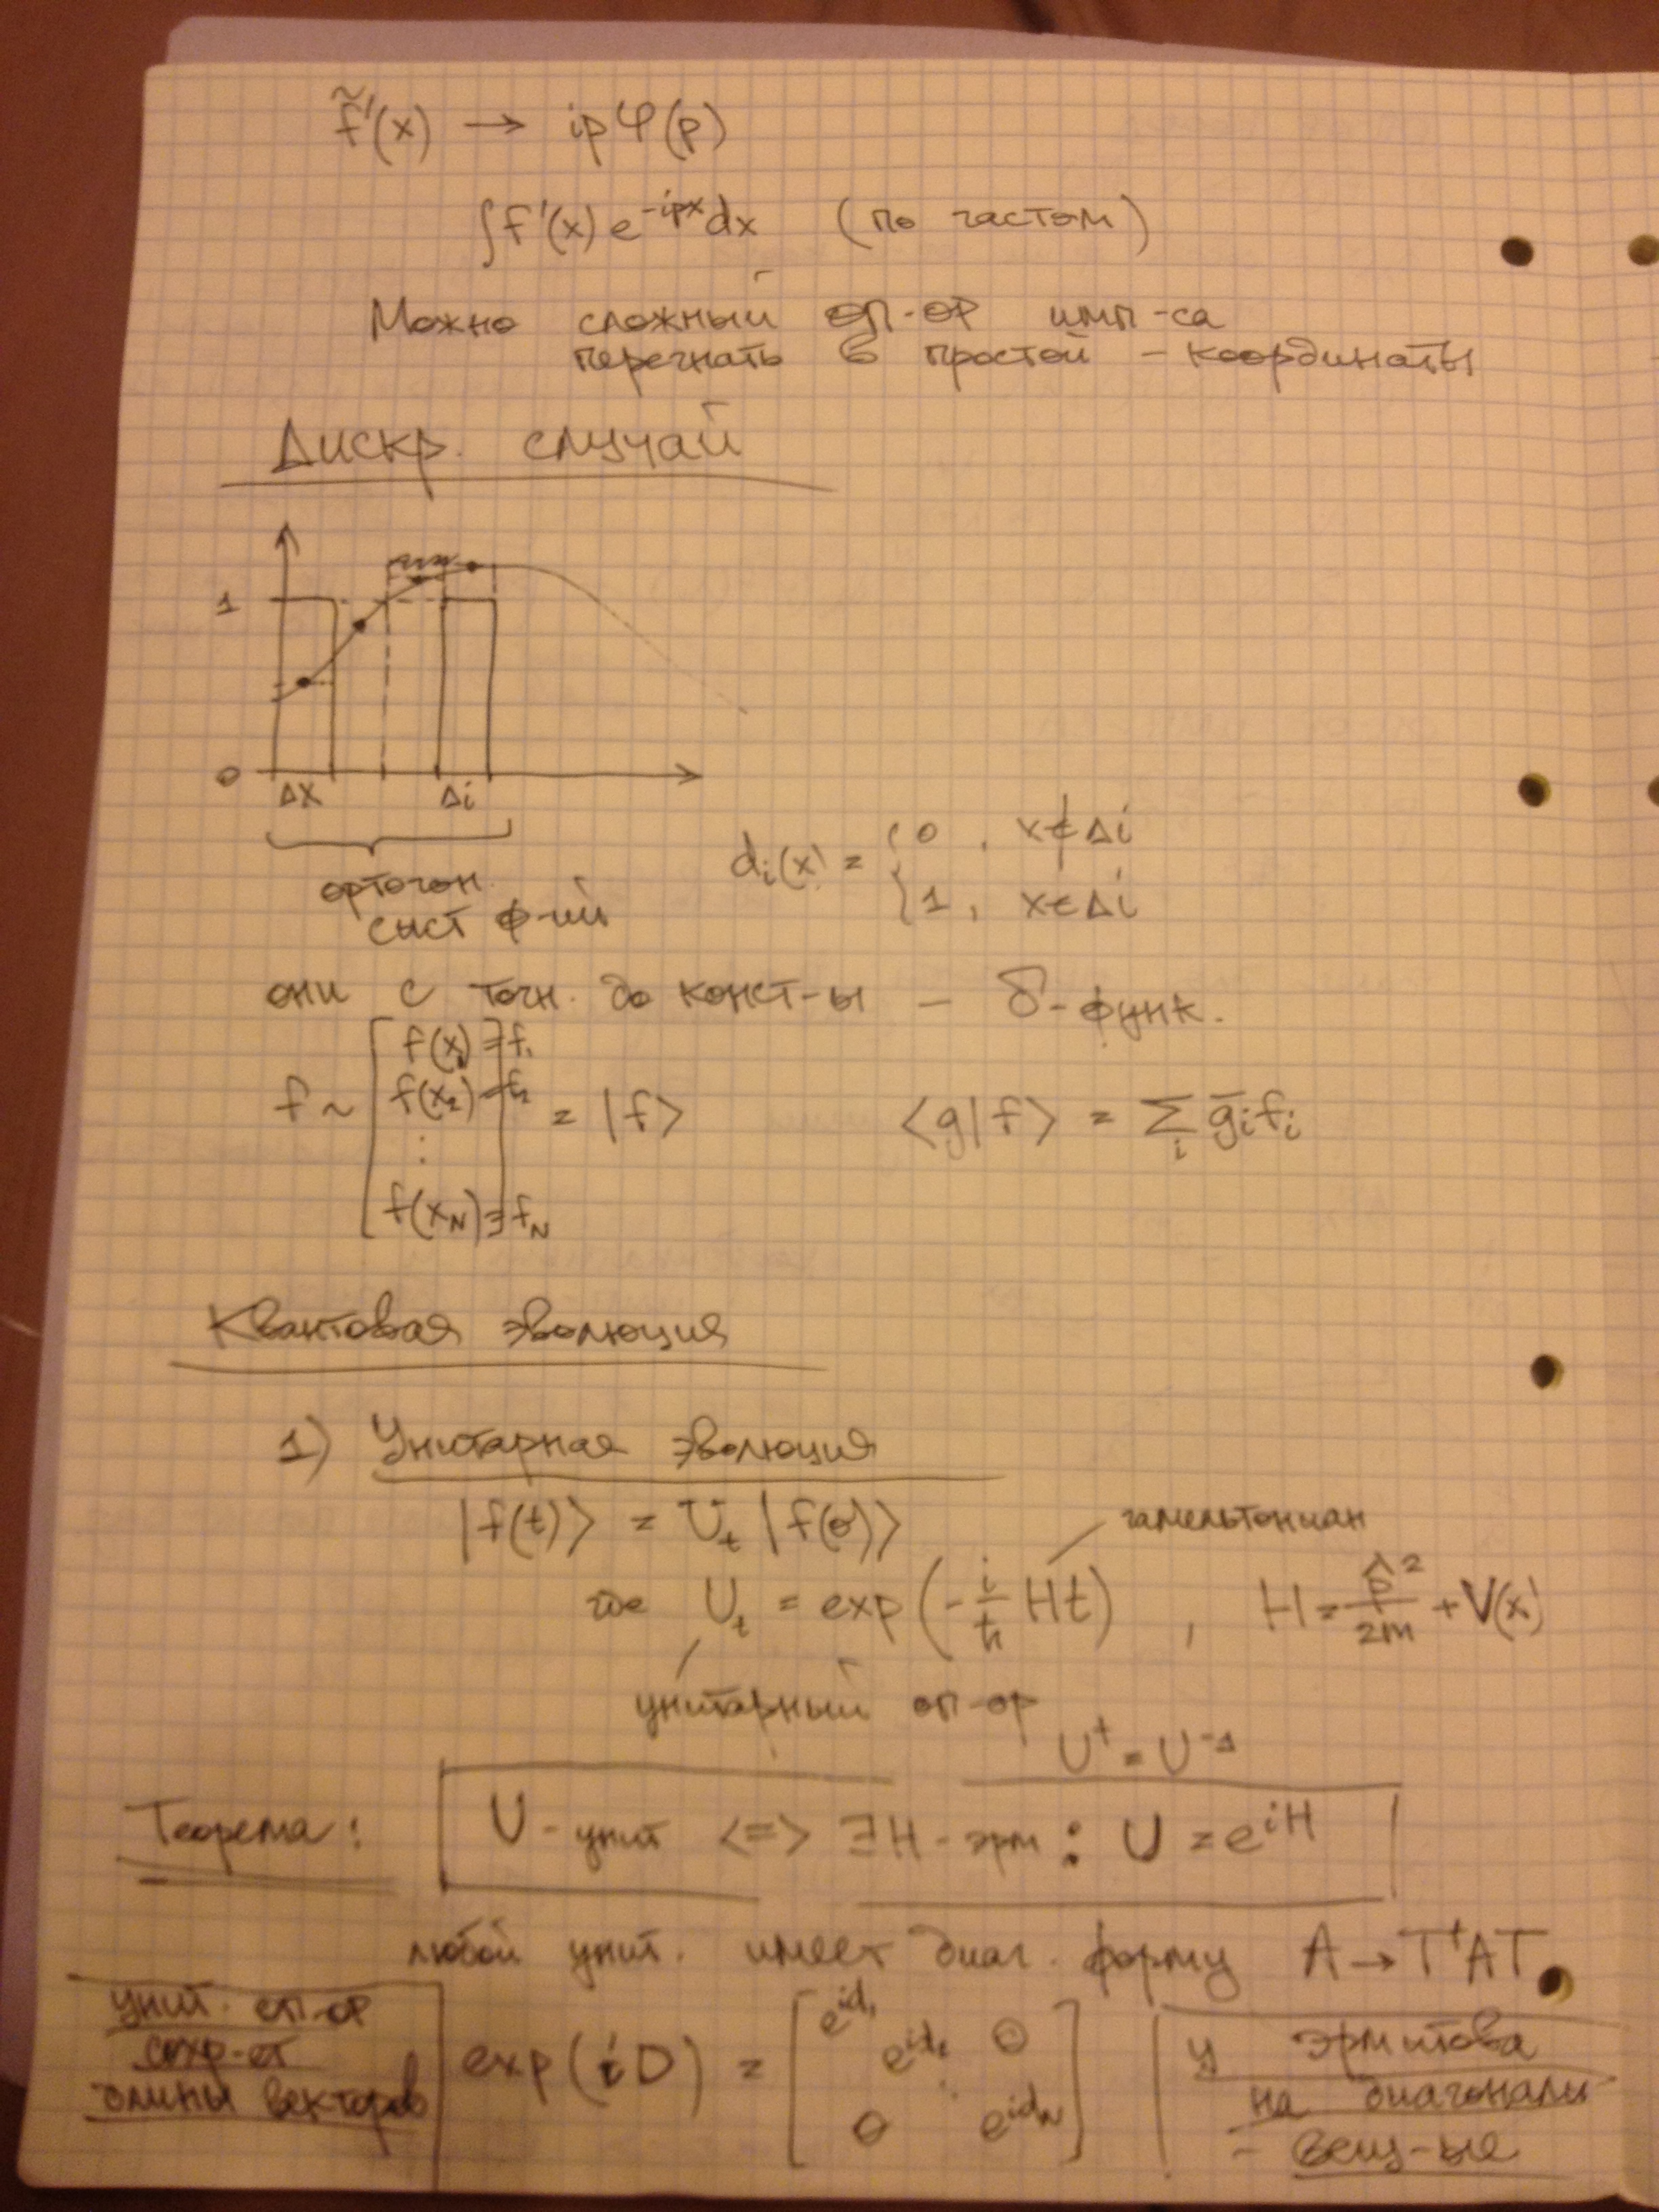 f̃'(x) → ipφ(p)
∫f'(x)e^{-ipx}dx (по частям)
Можно сложный оп-ор имп-са
перегнать в простой – координаты
Дискр. случай
1
0
Δx Δi
ортогон.
сист ф-ий
d_i(x) = { 0, x∉Δi
1, x∈Δi
они с точн. до конст-ы – δ-функ.
f ~ [ f(x₁) ≡ f₁
f(x₂) ≡ f₂
⋮
f(x_N) ≡ f_N ] = |f⟩
⟨g|f⟩ = Σ_i ḡ_i f_i
Квантовая эволюция
1) Унитарная эволюция
|f(t)⟩ = U_t |f(0)⟩
гамельтониан
где U_t = exp(-i/ħ Ht) , H = p̂²/2m + V(x)
унитарный оп-ор
U⁺ = U⁻¹
Теорема: U - унит <=> ∃H - эрм : U = e^{iH}
любой унит. имеет диаг. форму A → T⁺AT
унит. оп-ор
сохр-ет
длины векторов
exp(iD) = [ e^{id₁} e^{id₂} 0
0 e^{id_N} ]
у эрмитова
на диагонали
– вещ-ые